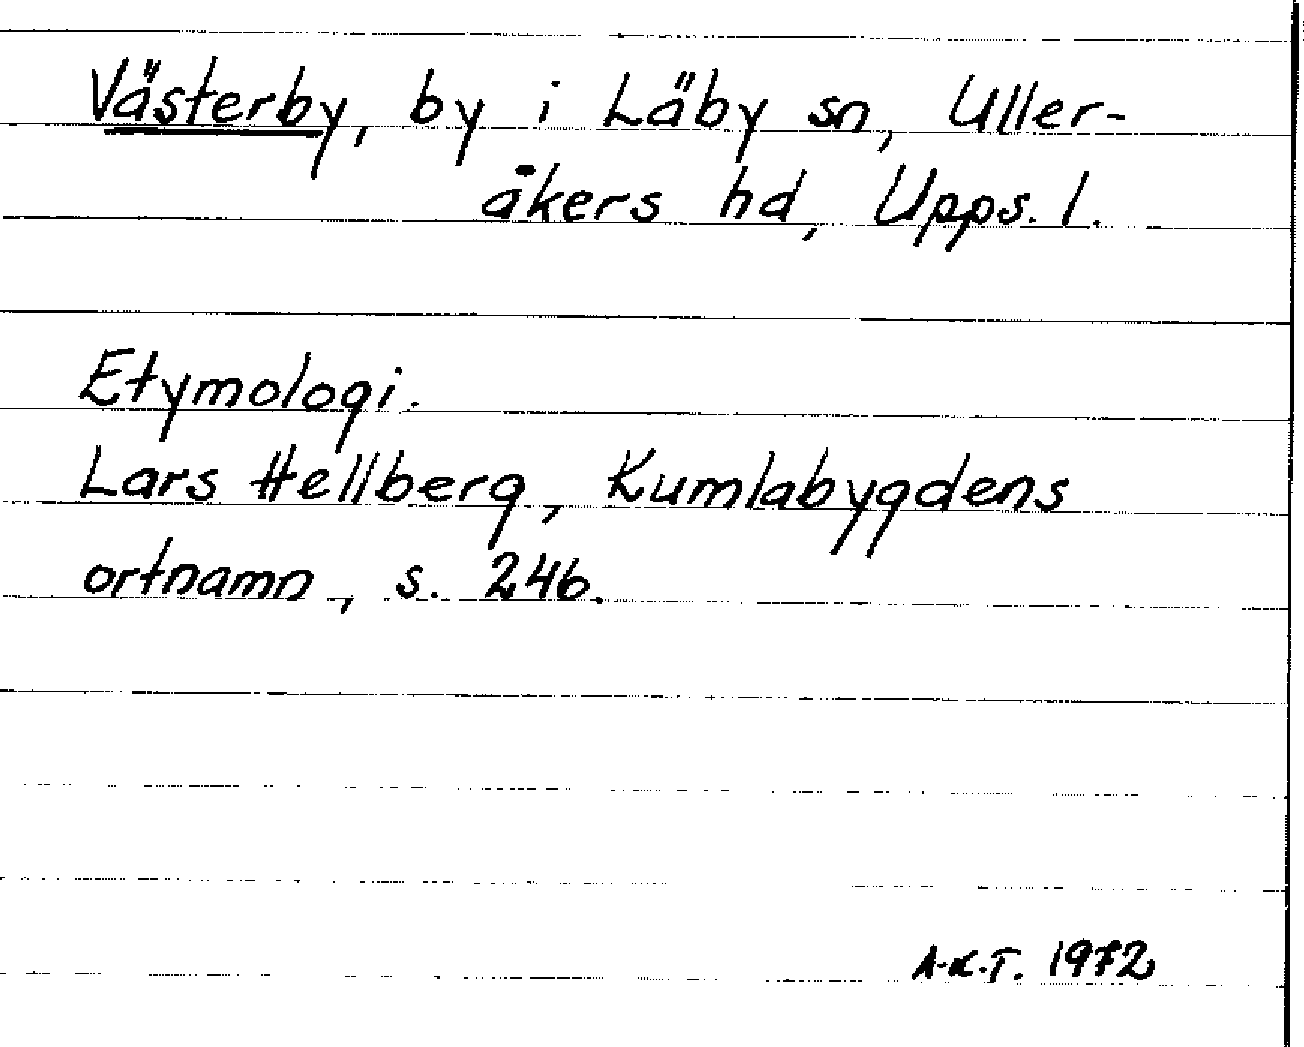 Västerby, by i Läby sn, Uller-
åkers hd, Upps. l.
Etymologi.
Lars Hellberg, Kumlabygdens
ortnamn, s. 246.
A-K.T. 1972